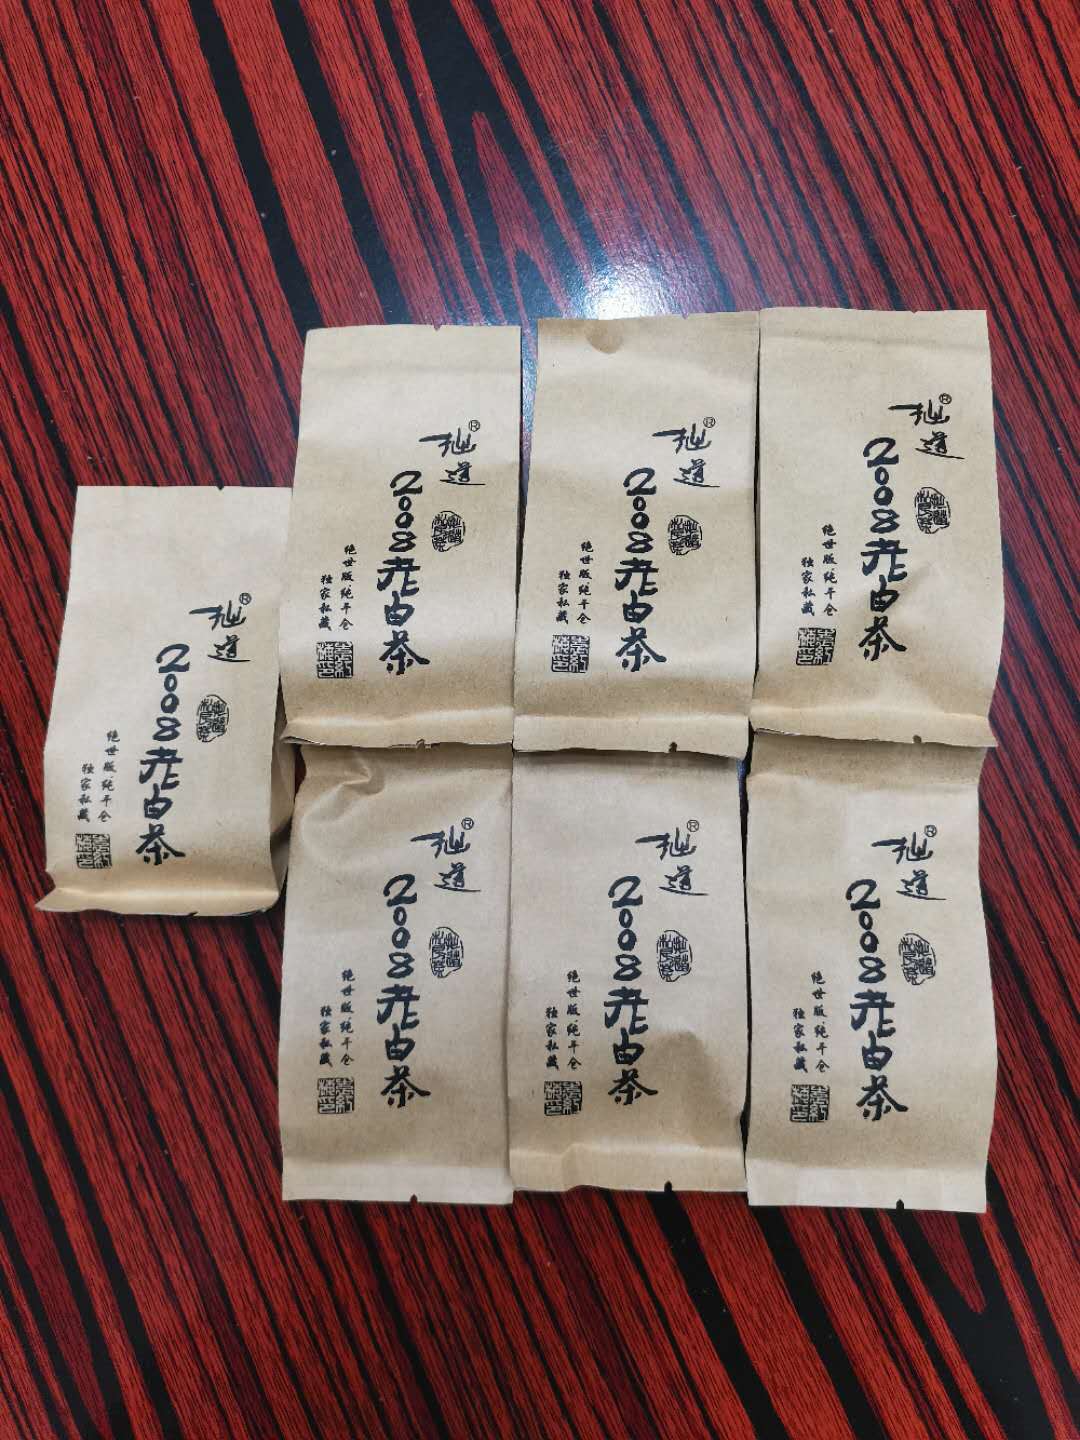 拙道®
2008老白茶
绝世版.纯干仓
独家私藏
拙道®
2008老白茶
绝世版.纯干仓
独家私藏
拙道®
2008老白茶
绝世版.纯干仓
独家私藏
拙道®
2008老白茶
绝世版.纯干仓
独家私藏
拙道®
2008老白茶
绝世版.纯干仓
独家私藏
拙道®
2008老白茶
绝世版.纯干仓
独家私藏
拙道®
2008老白茶
绝世版.纯干仓
独家私藏